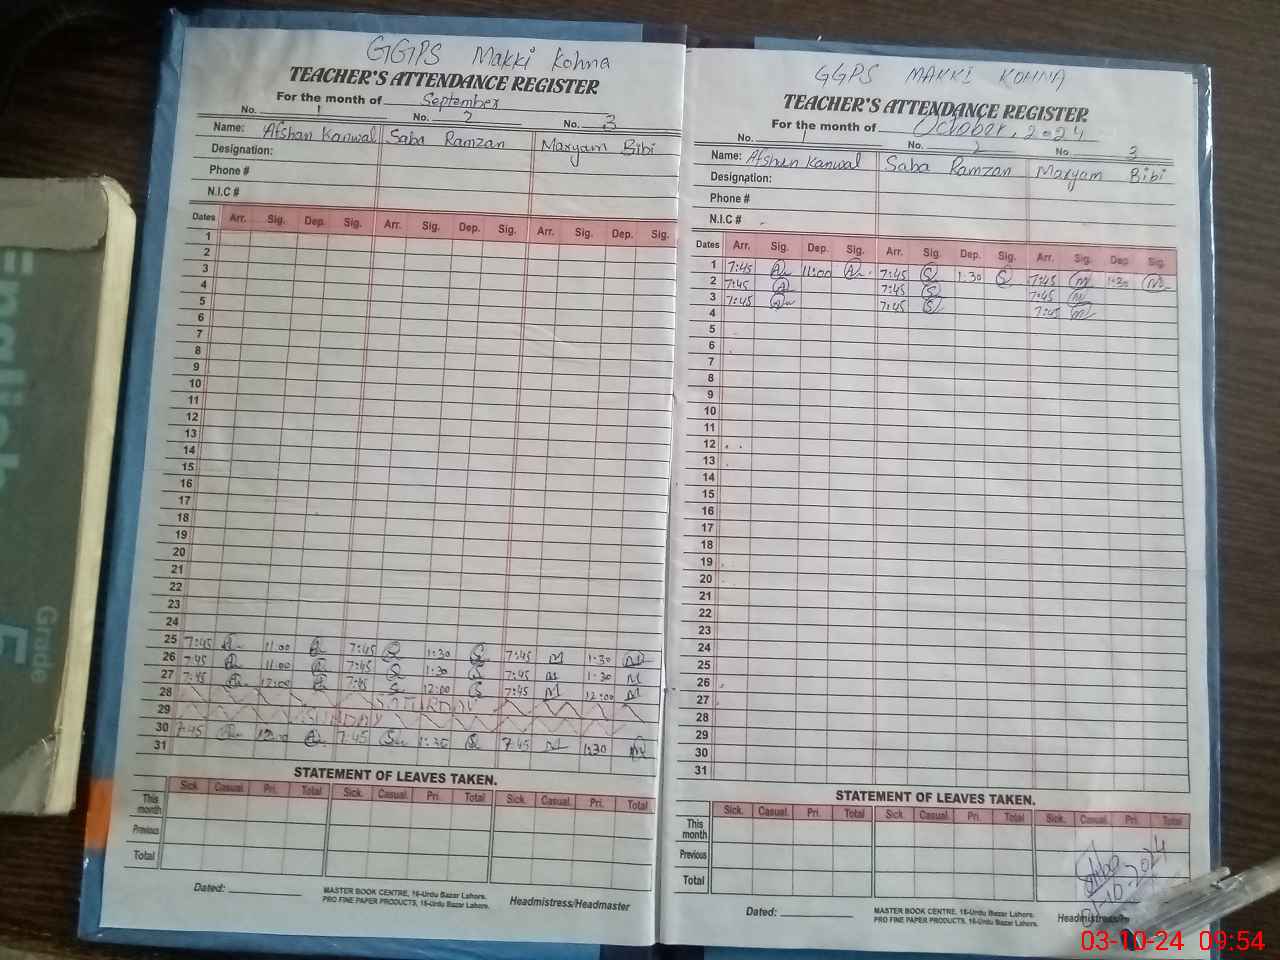 GGPS Makki Kohna
TEACHER'S ATTENDANCE REGISTER
For the month of September
No. 1 No. 2 No. 3
Name: Afshan Kanwal Saba Ramzan Maryam Bibi
Designation:
Phone #
N.I.C #
Dates Arr. Sig. Dep. Sig. Arr. Sig. Dep. Sig. Arr. Sig. Dep. Sig.
1
2
3
4
5
6
7
8
9
10
11
12
13
14
15
16
17
18
19
20
21
22
23
24
25 7:45 11:00 7:45 1:30 S 7:45 M 1:30 M
26 7:45 11:00 7:45 1:30 S 7:45 M 1:30 M
27 7:45 12:00 7:45 12:00 S 7:45 M 12:00 M
28 SATURDAY
29 SUNDAY
30 7:45 7:45 1:30 S 7:45 M 1:30 M
31
STATEMENT OF LEAVES TAKEN.
Sick. Casual. Pri. Total Sick. Casual. Pri. Total Sick. Casual. Pri. Total
This month
Previous
Total
Dated:
MASTER BOOK CENTRE, 16-Urdu Bazar Lahore.
PRO FINE PAPER PRODUCTS, 16-Urdu Bazar Lahore.
Headmistress/Headmaster
GGPS MAKKI KOHNA
TEACHER'S ATTENDANCE REGISTER
For the month of October, 2024
No. 1 No. 2 No. 3
Name: Afshan Kanwal Saba Ramzan Maryam Bibi
Designation:
Phone #
N.I.C #
Dates Arr. Sig. Dep. Sig. Arr. Sig. Dep. Sig. Arr. Sig. Dep. Sig.
1 7:45 A 11:00 A 7:45 S 1:30 S 7:45 M 1:30 M
2 7:45 A 7:45 S 7:45 M
3 7:45 A 7:45 S 7:45 M
4
5
6
7
8
9
10
11
12
13
14
15
16
17
18
19
20
21
22
23
24
25
26
27
28
29
30
31
STATEMENT OF LEAVES TAKEN.
Sick. Casual. Pri. Total Sick. Casual. Pri. Total Sick. Casual. Pri. Total
This month
Previous
Total
Dated:
MASTER BOOK CENTRE, 16-Urdu Bazar Lahore.
PRO FINE PAPER PRODUCTS, 16-Urdu Bazar Lahore.
English
Grade 5
03-10-24 09:54